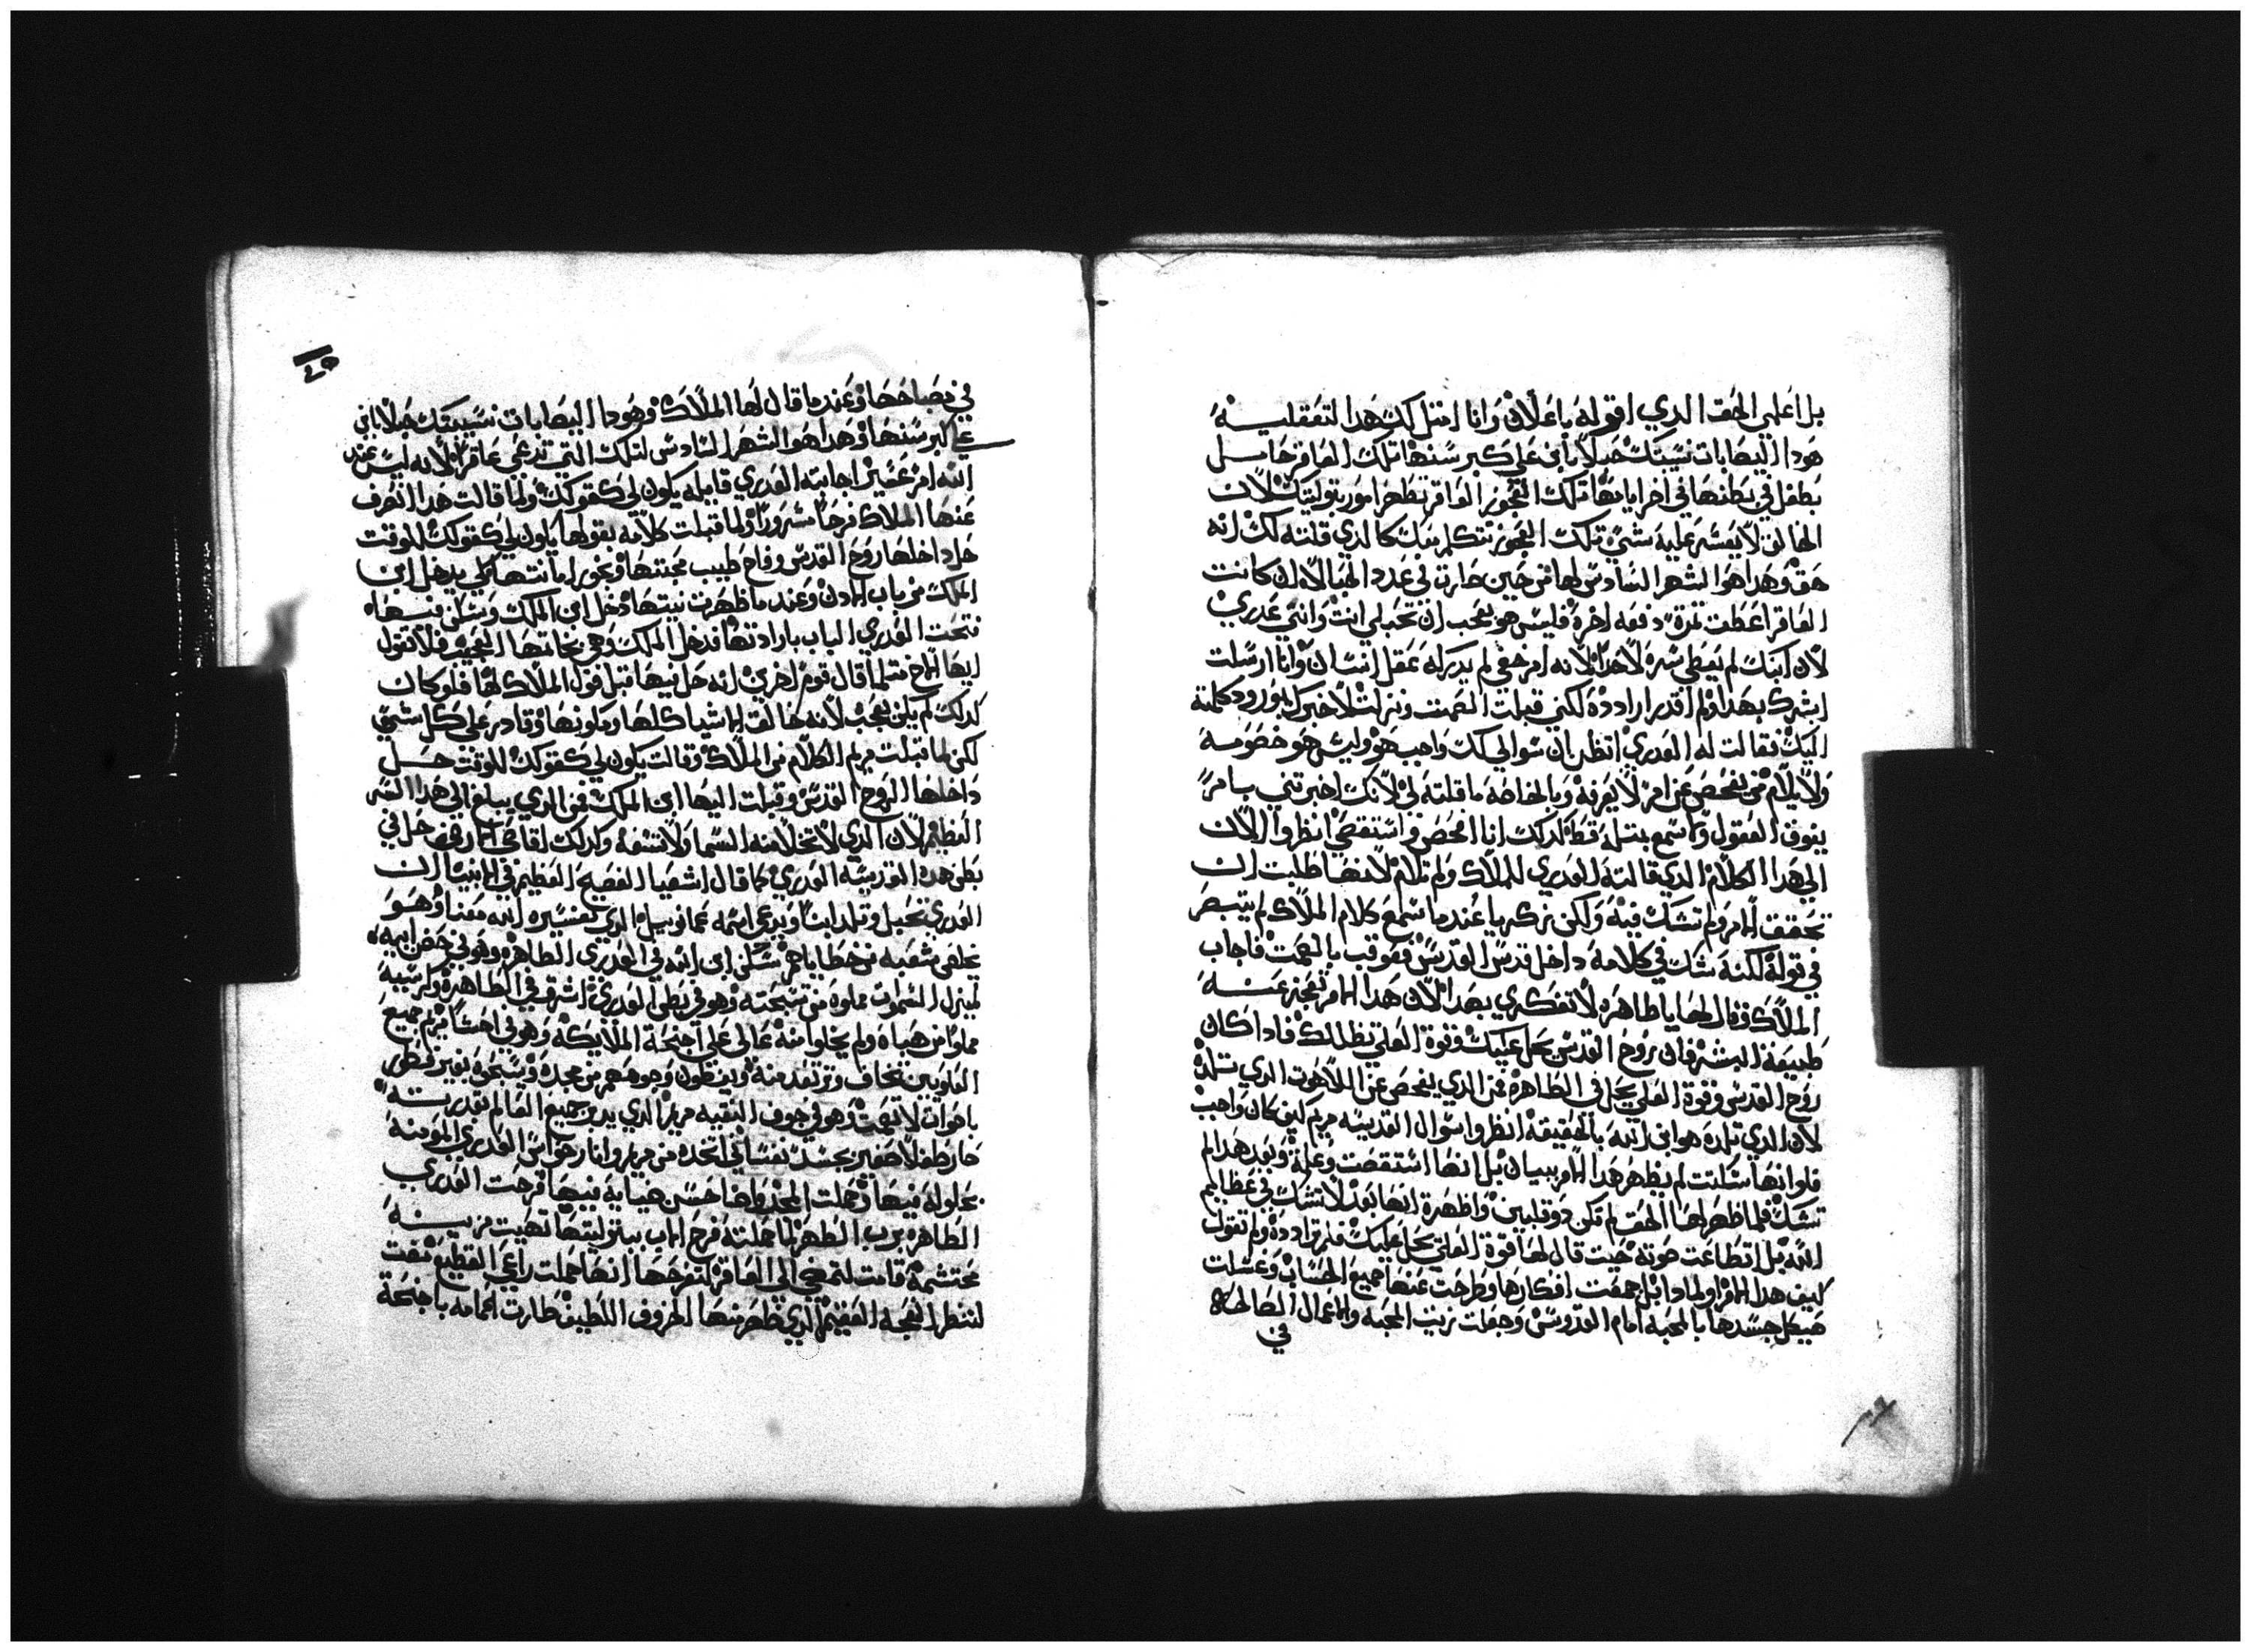 بل اعلمي الحق الدي اقوله باعلان وانا امتل لك هدا لتعقليه
هودا اليصابات نسيبتك حبلا بابن على كبر سنها تلك العاقر حامل
بطفل في بطنها في اخر ايامها تلك العجوز العاقر تظهر امور بتوليتك لان
الخالق لا يعسر عليه شي تلك العجوز تتكلم معك كالدي قلته لك انه
حق وهدا هو الشهر السادس لها من حين صارت في عدد الحبالا لان كانت
العاقر اعطت تمرة دفعه اخرة فليس هو بعجب ان تحبلي انت وانتي عدري
لان ابنك لم يعطي سره لاحد لانه امر خفي لم يدركه عقل انسان وانا ارسلت
ابشرك بهدا ولم اقدر ارادده لكني قبلت الصمت ونزلت لاخبرك بورود كلمته
اليك فقالت له العدري اتظن بان سوالي لك واجب هو وليس هو خصومه
ولا يلام من يفحص عن امر لا يعرفه وبالخاصه ما قلته لي لانك اخبرتني بامر
يفوق العقول ولا سمع بمتله قط كدلك انا افحص واستقصي انظروا الان
الي هدا الكلام الدي قالته العدري للملاك ولم تلام لانها طلبت ان
تحقق الامر ولم تشك فيه ولكن زكريا عندما سمع كلام الملاك لم يتبصر
في قوله لكنه شك في كلامه داخل قدس القدس فعوقب بالصمت فاجاب
الملاك وقال لها يا طاهره لا تفكري بعد الان هدا الامر تعجز عنه
طبيعة البشر فان روح القدس يحل عليك وقوة العلي تظللك فادا كان
روح القدس وقوة العلي يحل في الطاهره فمن الدي يفحص عن اللاهوت الدي تلده
لان الدي تلده هو ابن الله بالحقيقه انظروا سوال القديسه مريم كيف كان واجب
فلو انها سكتت لم يظهر هدا الامر ببيان بل انها استقصت وعلمة وبعد هدا لم
تشك فلما ظهر لها الحق لم تكن دو قلبين واظهرة انها بعد لا تشك في عظايم
الله بل اطاعت صوته حيت قال لها قوة العلي يحل عليك فلم ترادده ولم تقول
كيف هدا الامر او لمادا بل جمعت افكارها وطرحت عنها جميع الحساب وغسلت
هيكل جسدها بالمحبه امام القدوس وجعلت زيت المحبه والاعمال الصالحه
في
20
في مصباحها وعندما قال لها الملاك وهودا اليصابات نسيبتك حبلا بابن
على كبر سنها وهدا هو الشهر السادس لتلك التي تدعى عاقرا لانه ليس عند
الله امر عسير اجابته العدري قايله يكون لي كقولك ولما قالت هدا انصرف
عنها الملاك فرحا مسرورا ولما قبلت كلامه بقولها يكون لي كقولك للوقت
حل داخلها روح القدس وفاح طيب محبتها وبخور امانتها لكي يدخل ابن
الملك من باب الادن وعندما ظهرت نيتها دخل ابن الملك وسكن فيها
فتحت العدري الباب بارادتها فدخل الملك وهي بخاتمها العجيب فلا تقول
ايها الاخ متلما قال قوم اخرين انه حل فيها قبل قول الملاك لها فلو كان
كدلك لم يكن بعجب لانه خالق الاشيا كلها ومكونها وقادر على كل شي
لكن لما قبلت مريم الكلام من الملاك وقالت يكون لي كقولك للوقت حل
داخلها الروح القدس وقبلت اليها ابن الملك فمن الدي يبلغ الي هدا السر
العظيم لان الدي لا تخلا منه السما ولا تسعه وكدلك اقاصي الارض حل في
بطن هده القديسه العدري كما قال اشعيا الفصيح العظيم في الانبيا ان
العدري تحبل وتلد ابنا ويدعى اسمه عمانوييل الدي تفسيره الله معنا وهو
يخلص شعبه من خطاياهم سكن ابن الله في العدري الطاهره وهو في حضن ابيه
لم يزل السموات مملوه من تسبحته وهو في بطن العدري اشرق في الطاهره وكرسيه
مملوا من هباه ولم يخلوا منه عالى على اجنحة الملايكه وهو في احشا مريم جميع
العلويين تخاف وترتعد منه ويغطون وجوههم من مجده ويسبحوه بغير فطور
باصوات لا تصمت وهو في جوف النقيه مريم الدي يدبر جميع العالم بقدرته
صار طفلا صغير بجسد نفساني اتحده من مريم وانار هو اس العدري المومنه
بحلوله فيها وحملت المجد واضا حسن ضيايه فيها فرحت العدري
الطاهره برب الطهر لما حملته فرح الاب ببتوليتها تهيت مزينه
محتشمه قامت لتمضي الى العاقر لتفرحها انها حملت راعي القطيع مضت
لتنظر النعجه العقيم الدي ظهر منها الخروف اللطيف طارت الحمامه باجنحة